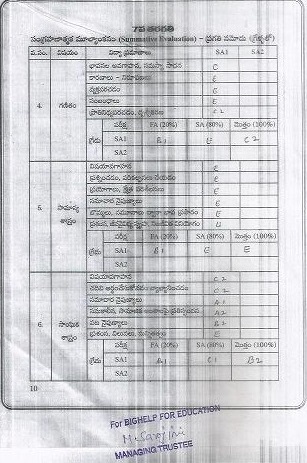 7వ తరగతి
సంగ్రహణాత్మక మూల్యాంకనం (Summative Evaluation) – ప్రగతి నమోదు (గ్రేడ్లలో)
వ.సం. విషయం విద్యా ప్రమాణాలు SA1 SA2
భావనల అవగాహన, సమస్యా సాధన C
కారణాలు – నిరూపణలు E
వ్యక్తపరచడం E
4. గణితం సంబంధాలు E
ప్రాతినిధ్యపరచడం, దృశ్యీకరణ C
పరీక్ష FA (20%) SA (80%) మొత్తం (100%)
గ్రేడు SA1 B1 E C2
SA2
విషయావగాహన E
ప్రశ్నించడం, పరికల్పనలు చేయడం E
ప్రయోగాలు, క్షేత్ర పరిశీలనలు E
5. సామాన్య శాస్త్రం సమాచార నైపుణ్యాలు E
E
E
పరీక్ష FA (20%) SA (80%) మొత్తం (100%)
గ్రేడు SA1 B1 E E
SA2
విషయావగాహన C2
C2
సమాచార నైపుణ్యాలు A1
6. సాంఘిక శాస్త్రం A2
పట నైపుణ్యాలు B1
C1
పరీక్ష FA (20%) SA (80%) మొత్తం (100%)
గ్రేడు SA1 A1 C1 B2
SA2
10
For BIGHELP FOR EDUCATION
M. Sarojini
MANAGING TRUSTEE